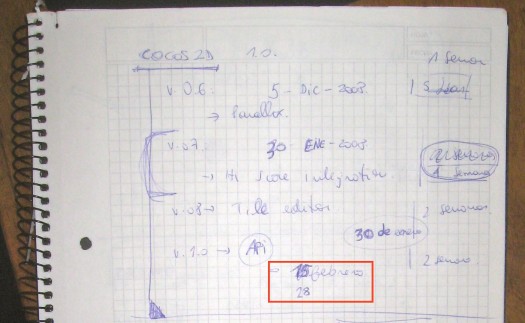 COCOS 2D 1.0.
1 semana
v. 0.6 5 - Dic - 2008
→ Parallax.
v. 0.7 30 - ENE - 2009
→ Hi Score integration
1 semana
v. 0.8 → Tile editor 2 semanas
30 de enero
v. 1.0 → API 2 semanas
15 febrero
28